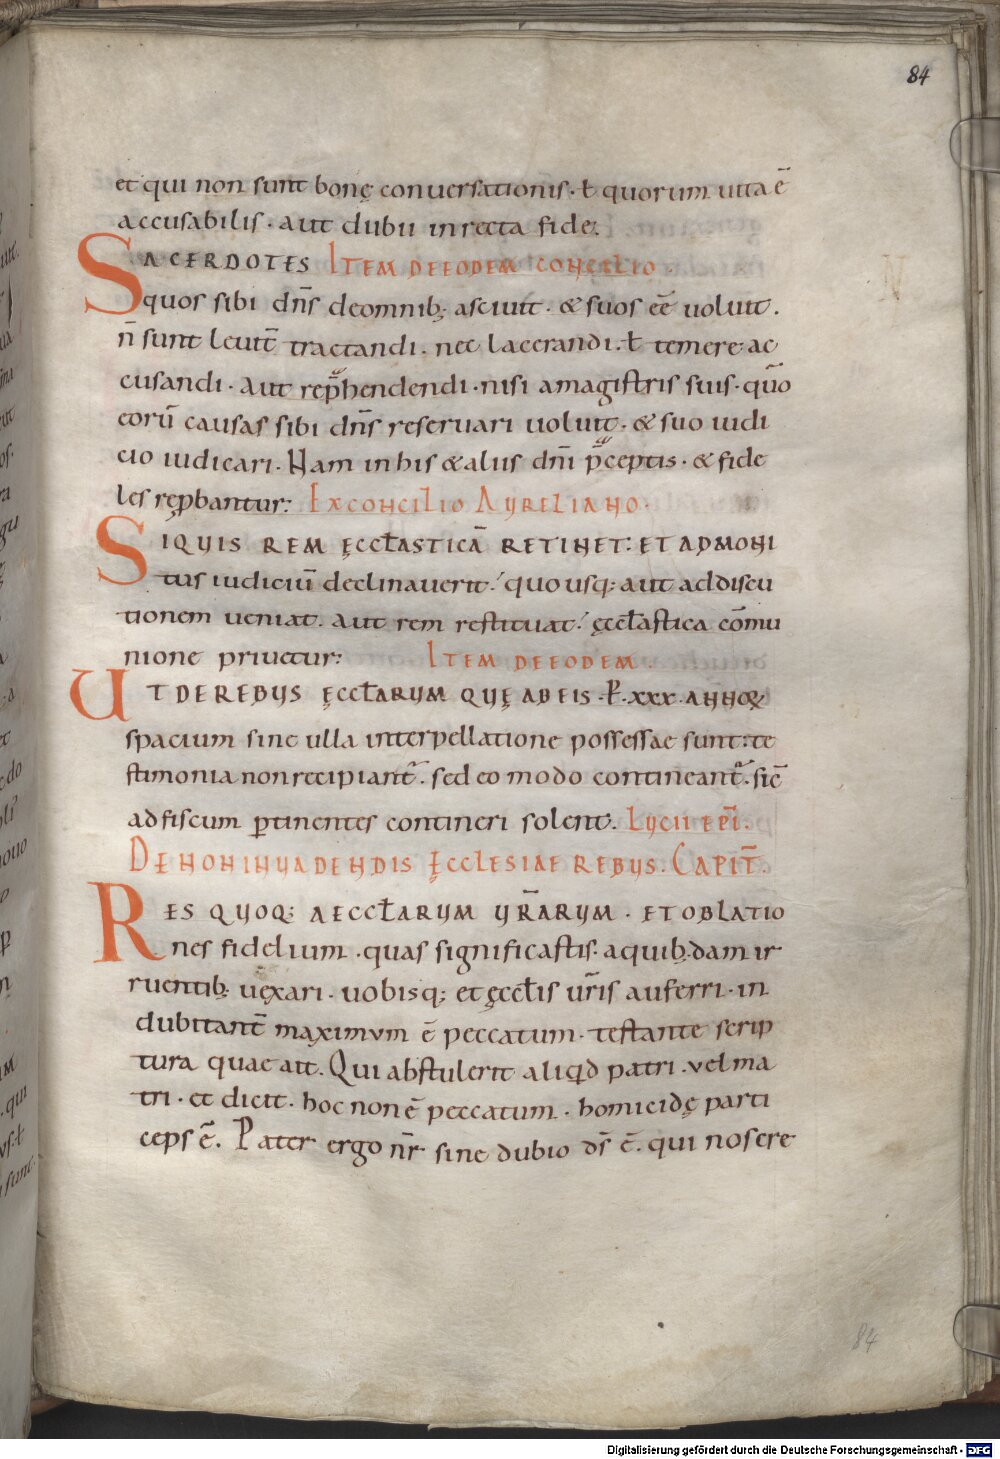 84
et qui non sunt bonę conuersationis · ł quorum uita ē
accusabilis · aut dubii in recta fide.
SACERDOTES ITEM DE EODEM CONCILIO .
quos sibi dn̄s de omnib; asciuit · & suos eē uoluit .
n̄ sunt leuit̄ tractandi · nec lacerandi · ł temere ac
cusandi · aut rep̄hendendi · nisi a magistris suis · quō
eorū causas sibi dn̄s reseruari uoluit · & suo iudi
cio iudicari · Nam in his & aliis dn̄i p̄ceptis · & fide
les rep̱bantur: EX CONCILIO AURELIANO ·
SIQUIS REM ĘCCŁASTICĀ RETINET: ET ADMONI
tus iudiciū declinauerit: quo usq; aut ad discu
tionem ueniat. aut rem restituat: ęccłastica cōmu
nione priuetur: ITEM DE EODEM .
UT DE REBUS ĘCCŁARUM QUĘ AB EIS · P̄ · xxx · ANNOꝜ
spacium sine ulla interpellatione possessae sunt: te
stimonia non recipiant̄ · sed eo modo contineant̄ · sic̄
ad fiscum ꝑtinentes contineri solent. LUCII EPĪ ·
DE NON INUADENDIS ĘCCLESIAE REBUS. CAPIT̄ .
RES QUOQ; AECCŁARUM UR̄ARUM · ET OBLATIO
nes fidelium · quas significastis · a quib;dam ir
ruentib; uęxari · uobisq; et ęccłis ur̄is auferri · in
dubitant̄ maximum ē peccatum · testante scrip
tura quae ait. Qui abstulerit aliqid patri · vel ma
tri · et dicit · hoc non ē peccatum · homicidę parti
ceps ē. Pater ergo nr̄ sine dubio ds̄ ē · qui nos cre
84
Digitalisierung gefördert durch die Deutsche Forschungsgemeinschaft - DFG